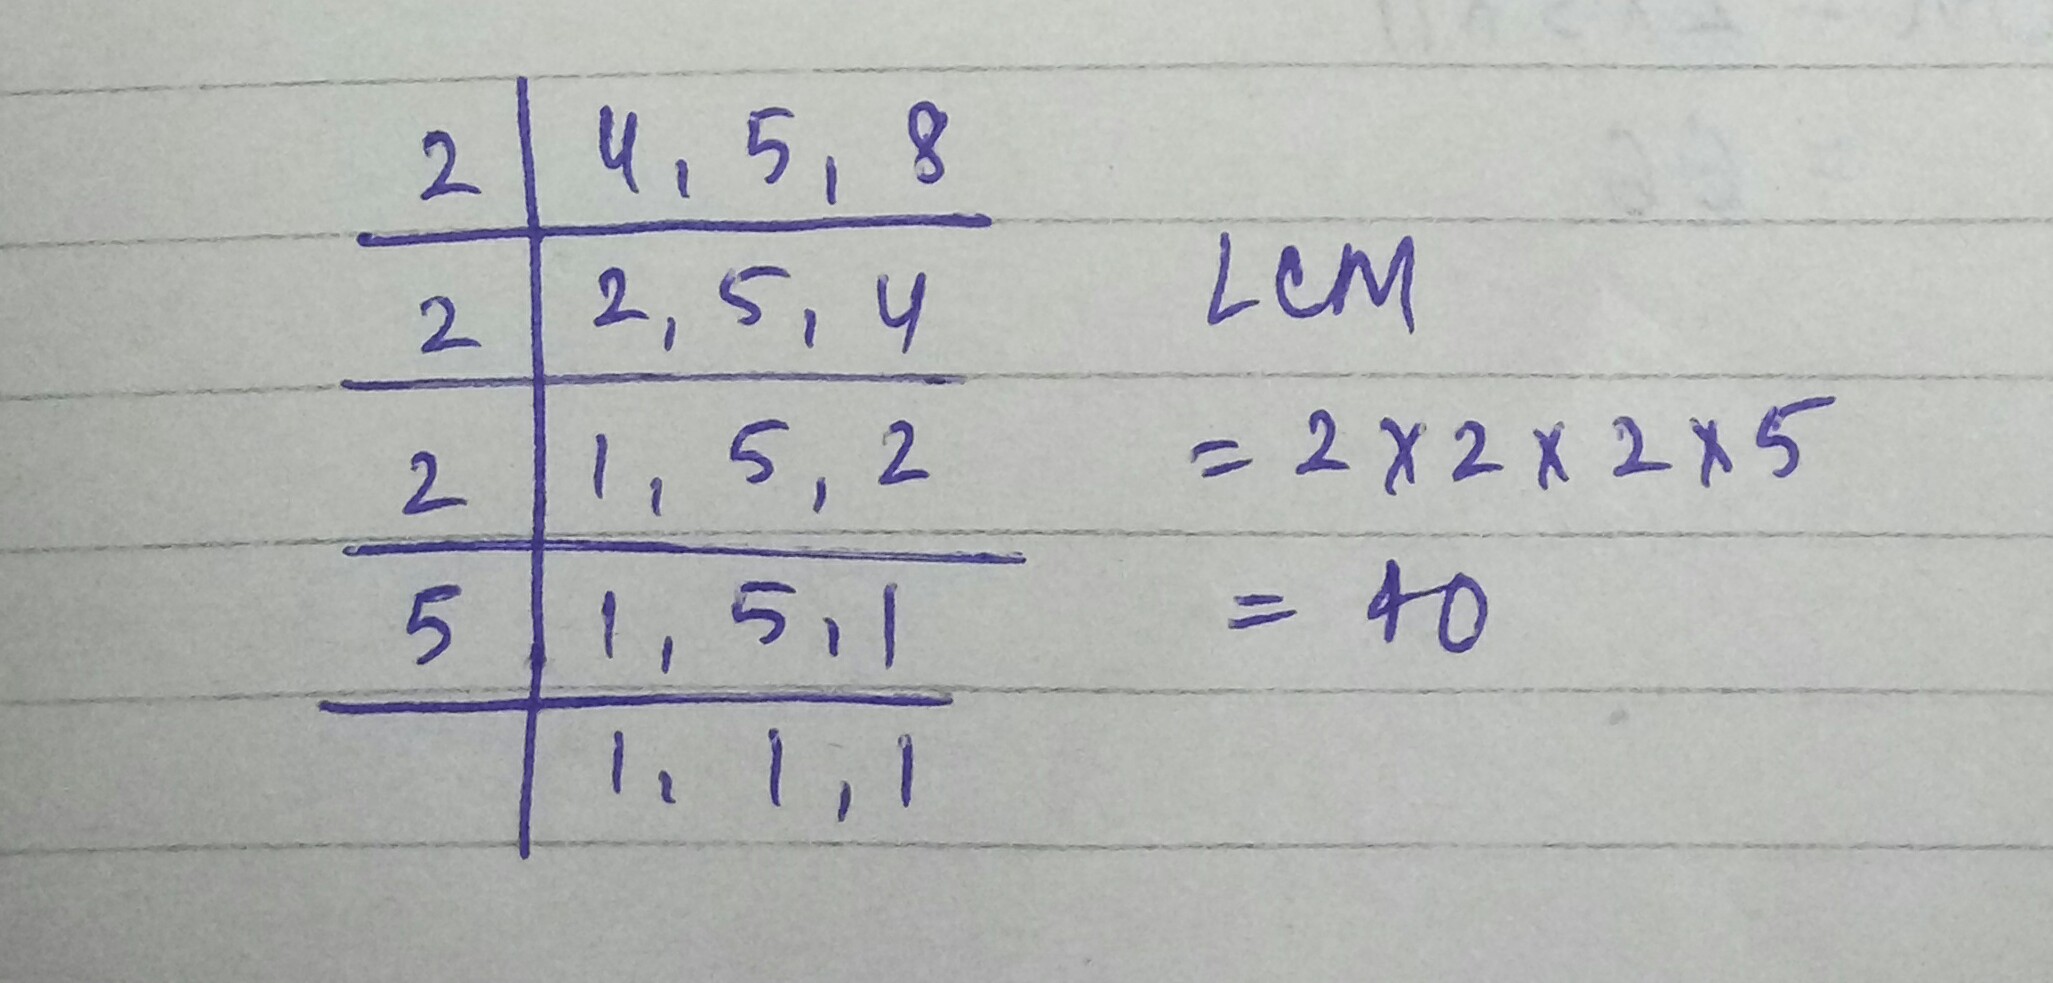 2 | 4, 5, 8
2 | 2, 5, 4
2 | 1, 5, 2
5 | 1, 5, 1
1, 1, 1
LCM
= 2 x 2 x 2 x 5
= 40